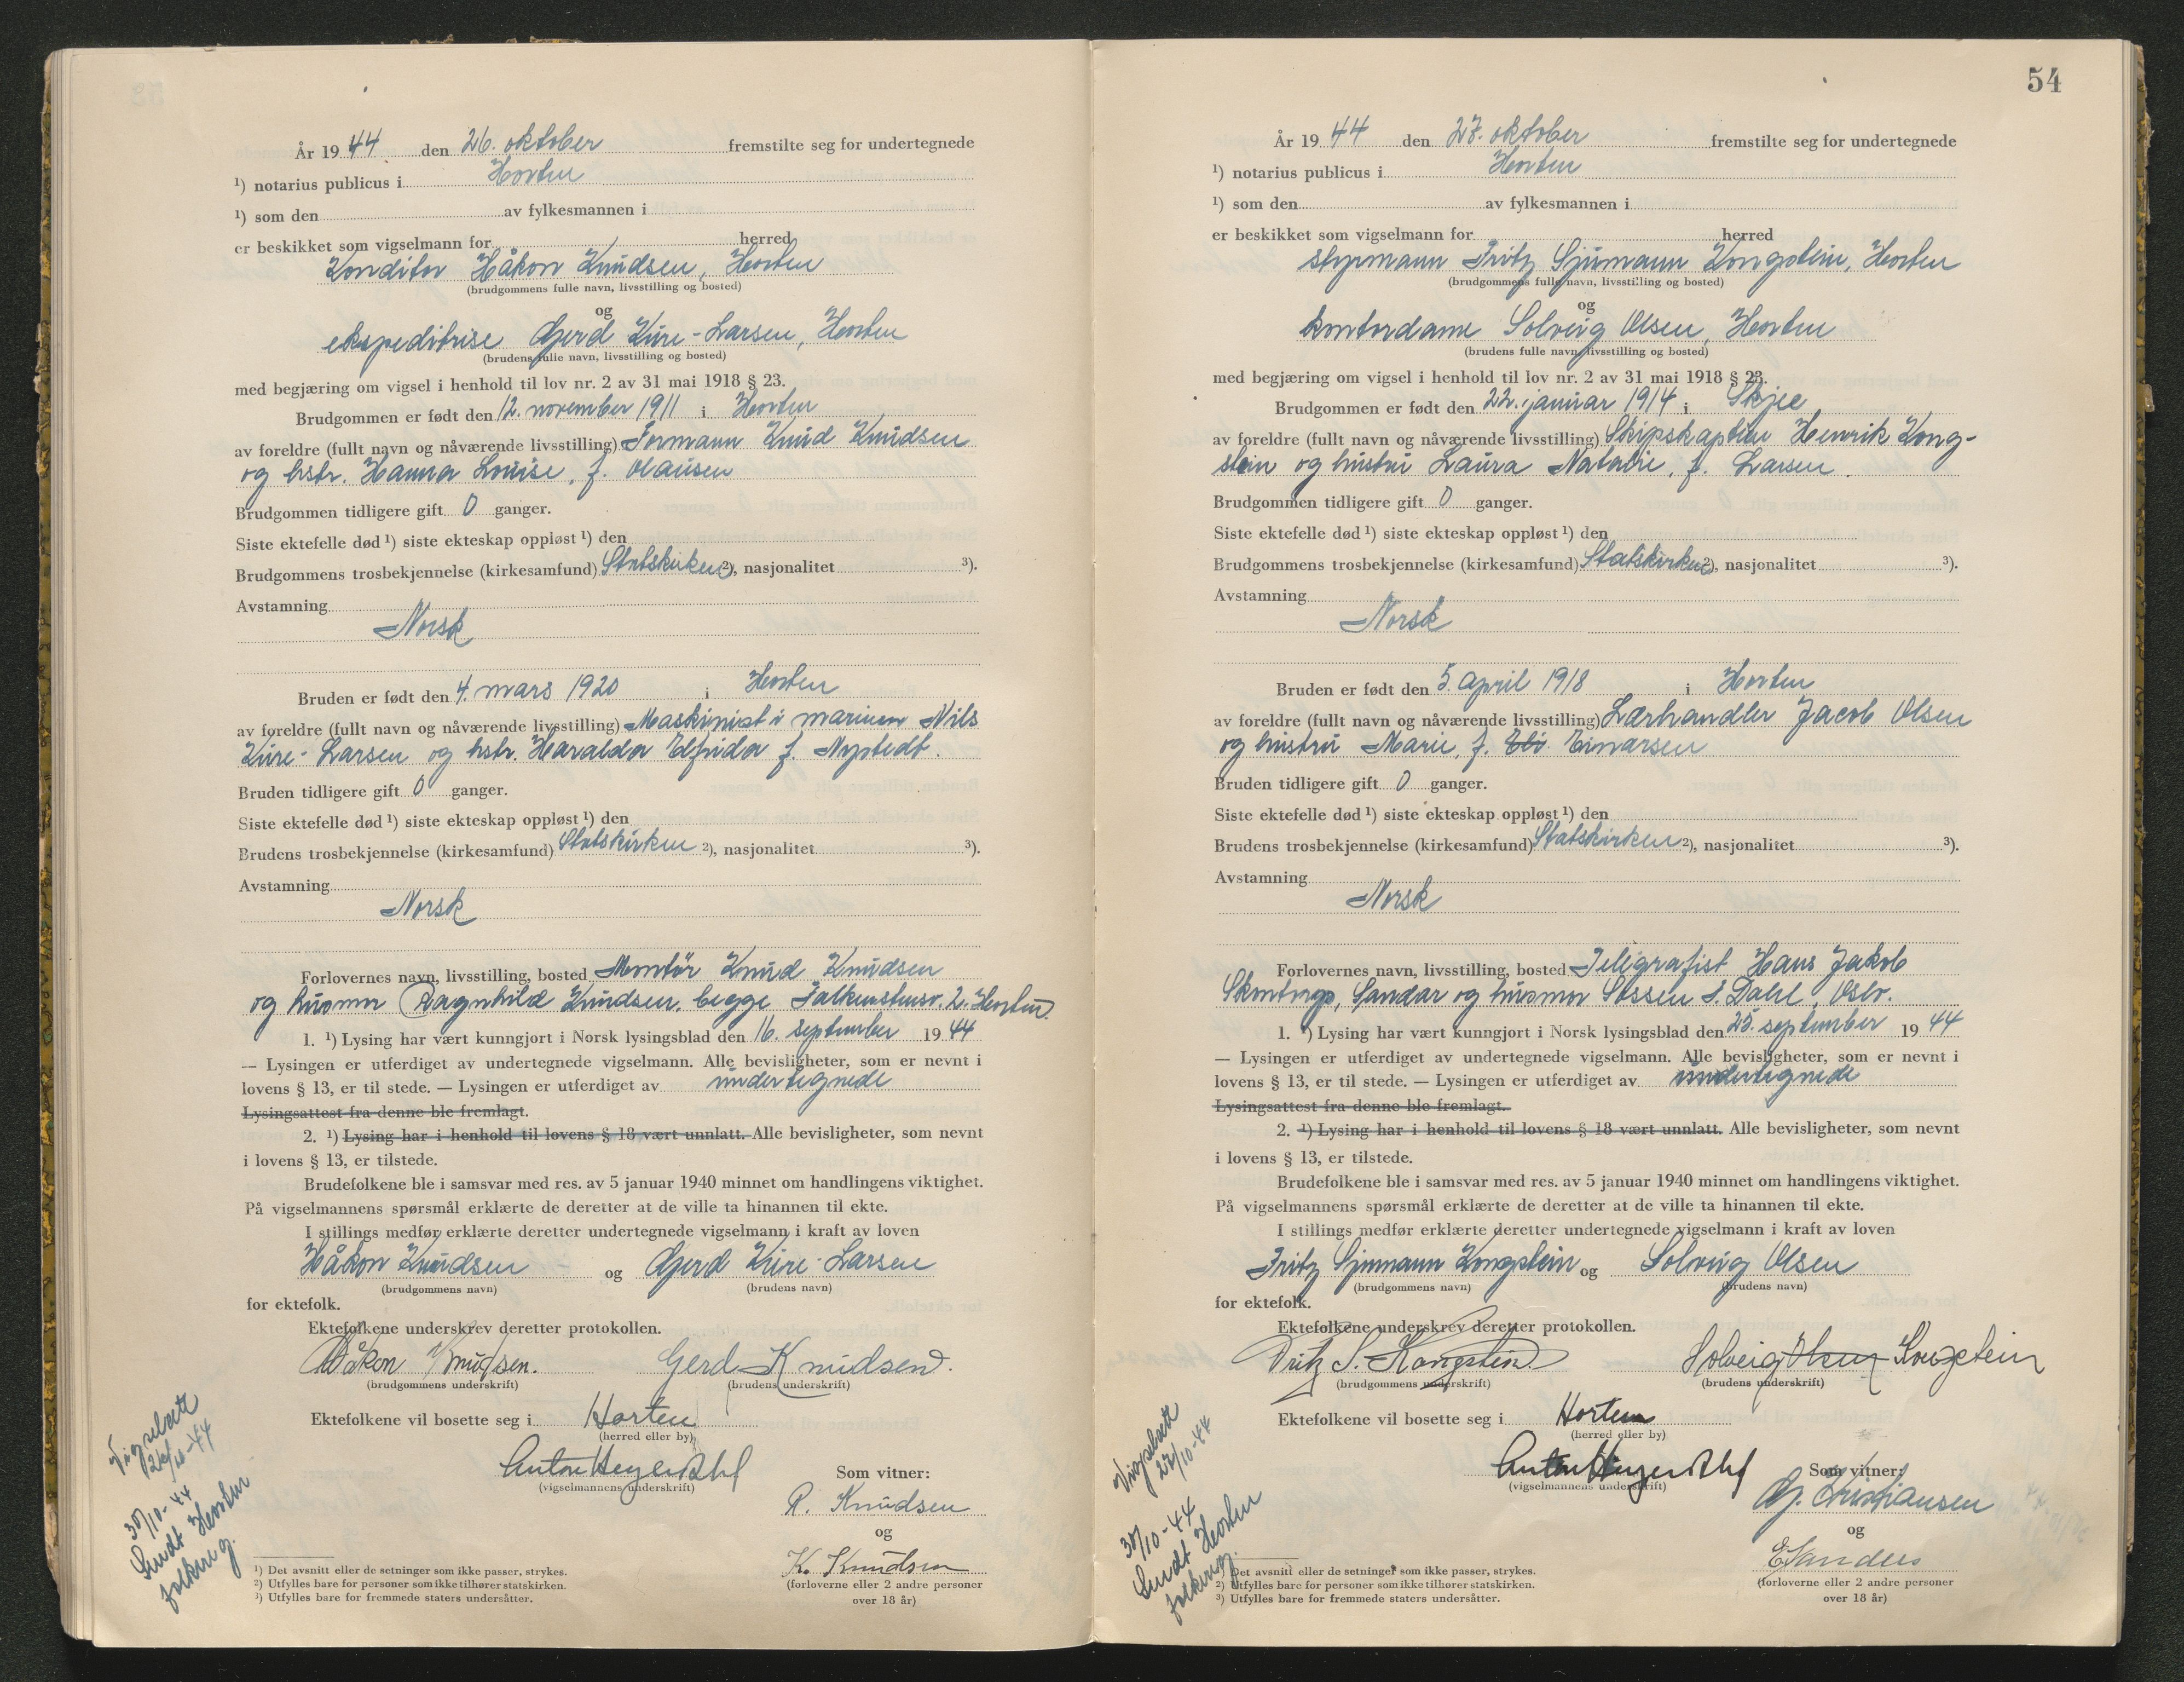 År 19 44 den 26. oktober fremstilte seg for undertegnede
¹) notarius publicus i Horten
¹) som den av fylkesmannen i
er beskikket som vigselmann for herred
Konditor Håkon Knudsen, Horten
(brudgommens fulle navn, livsstilling og bosted)
og
ekspeditrise Gerd Kure-Larsen, Horten
(brudens fulle navn, livsstilling og bosted)
med begjæring om vigsel i henhold til lov nr. 2 av 31 mai 1918 § 23.
Brudgommen er født den 12. november 1911 i Horten
av foreldre (fullt navn og nåværende livsstilling) Formann Knud Knudsen
og hstr. Hanna Louise, f. Olausen
Brudgommen tidligere gift 0 ganger.
Siste ektefelle død ¹) siste ekteskap oppløst ¹) den
Brudgommens trosbekjennelse (kirkesamfund) Statskirken ²), nasjonalitet ³).
Avstamning
Norsk
Bruden er født den 4. mars 1920 i Horten
av foreldre (fullt navn og nåværende livsstilling) Maskinist i marinen Nils
Kure-Larsen og hstr. Haralda Elfrida f. Nystedt.
Bruden tidligere gift 0 ganger.
Siste ektefelle død ¹) siste ekteskap oppløst ¹) den
Brudens trosbekjennelse (kirkesamfund) Statskirken ²), nasjonalitet ³).
Avstamning
Norsk
Forlovernes navn, livsstilling, bosted Montör Knud Knudsen
og husmor Ragnhild Knudsen. begge Falkenstensv. 2. Horten.
1. ¹) Lysing har vært kunngjort i Norsk lysingsblad den 16. september 19 44
— Lysingen er utferdiget av undertegnede vigselmann. Alle bevisligheter, som er nevnt i
lovens § 13, er til stede. — Lysingen er utferdiget av undertegnede
Lysingsattest fra denne ble fremlagt.
2. ¹) Lysing har i henhold til lovens § 18 vært unnlatt. Alle bevisligheter, som nevnt
i lovens § 13, er tilstede.
Brudefolkene ble i samsvar med res. av 5 januar 1940 minnet om handlingens viktighet.
På vigselmannens spørsmål erklærte de deretter at de ville ta hinannen til ekte.
I stillings medfør erklærte deretter undertegnede vigselmann i kraft av loven
Håkon Knudsen og Gerd Kure-Larsen
(brudgommens navn) (brudens navn)
for ektefolk.
Ektefolkene underskrev deretter protokollen.
Håkon Knudsen. Gerd Knudsen.
(brudgommens underskrift) (brudens underskrift)
Ektefolkene vil bosette seg i Horten
(herred eller by)
Som vitner:
(vigselmannens underskrift)
R. Knudsen
og
K. Knudsen
(forloverne eller 2 andre personer
over 18 år)
Vigselatt
26/10-44
30/10-44
Sendt Horten
folkereg.
¹) Det avsnitt eller de setninger som ikke passer, strykes.
²) Utfylles bare for personer som ikke tilhører statskirken.
³) Utfylles bare for fremmede staters undersåtter.
54
År 19 44 den 27. oktober fremstilte seg for undertegnede
¹) notarius publicus i Horten
¹) som den av fylkesmannen i
er beskikket som vigselmann for herred
styrmann Fritz Sjumann Kongstein, Horten
(brudgommens fulle navn, livsstilling og bosted)
og
kontordame Solveig Olsen, Horten
(brudens fulle navn, livsstilling og bosted)
med begjæring om vigsel i henhold til lov nr. 2 av 31 mai 1918 § 23.
Brudgommen er født den 22. januar 1914 i Skjee
av foreldre (fullt navn og nåværende livsstilling) Skipskaptein Henrik Kong-
stein og hustru Laura Natalie, f. Larsen.
Brudgommen tidligere gift 0 ganger.
Siste ektefelle død ¹) siste ekteskap oppløst ¹) den
Brudgommens trosbekjennelse (kirkesamfund) Statskirken ²), nasjonalitet ³).
Avstamning
Norsk
Bruden er født den 5. april 1918 i Horten
av foreldre (fullt navn og nåværende livsstilling) Lærhandler Jacob Olsen
og hustru Marie, f. Einarsen
Bruden tidligere gift 0 ganger.
Siste ektefelle død ¹) siste ekteskap oppløst ¹) den
Brudens trosbekjennelse (kirkesamfund) Statskirken ²), nasjonalitet ³).
Avstamning
Norsk
Forlovernes navn, livsstilling, bosted Telegrafist Hans Jakob
Sandar og husmor S. Dahl, Oslo.
1. ¹) Lysing har vært kunngjort i Norsk lysingsblad den 25. september 19 44
— Lysingen er utferdiget av undertegnede vigselmann. Alle bevisligheter, som er nevnt i
lovens § 13, er til stede. — Lysingen er utferdiget av undertegnede
Lysingsattest fra denne ble fremlagt.
2. ¹) Lysing har i henhold til lovens § 18 vært unnlatt. Alle bevisligheter, som nevnt
i lovens § 13, er tilstede.
Brudefolkene ble i samsvar med res. av 5 januar 1940 minnet om handlingens viktighet.
På vigselmannens spørsmål erklærte de deretter at de ville ta hinannen til ekte.
I stillings medfør erklærte deretter undertegnede vigselmann i kraft av loven
Fritz Sjumann Kongstein og Solveig Olsen
(brudgommens navn) (brudens navn)
for ektefolk.
Ektefolkene underskrev deretter protokollen.
Fritz S. Kongstein Solveig Olsen Kongstein
(brudgommens underskrift) (brudens underskrift)
Ektefolkene vil bosette seg i Horten
(herred eller by)
Som vitner:
(vigselmannens underskrift)
Christiansen
og
E Sanders
(forloverne eller 2 andre personer
over 18 år)
Vigselsatt
27/10-44
30/10-44
Sendt Horten
folkereg.
¹) Det avsnitt eller de setninger som ikke passer, strykes.
²) Utfylles bare for personer som ikke tilhører statskirken.
³) Utfylles bare for fremmede staters undersåtter.